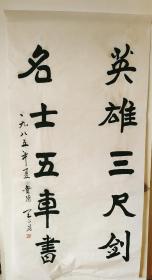 英雄三尺剑
名士五車書
一九八五年夏